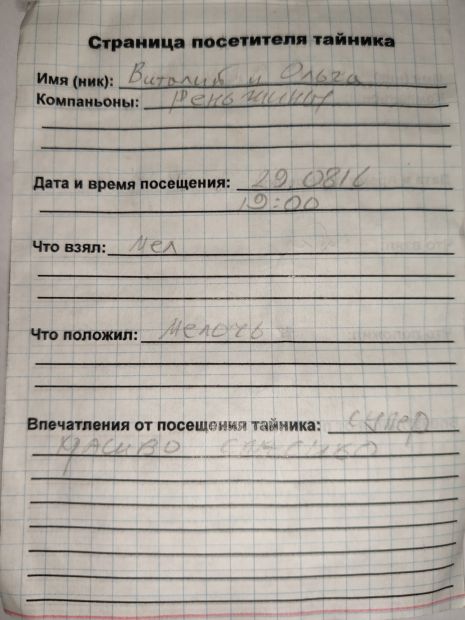 Страница посетителя тайника
Имя (ник): Виталий и Ольга
Компаньоны:
Дата и время посещения: 29.0816
19:00
Что взял: Мел
Что положил: мелочь
Впечатления от посещения тайника: супер
красиво спасибо